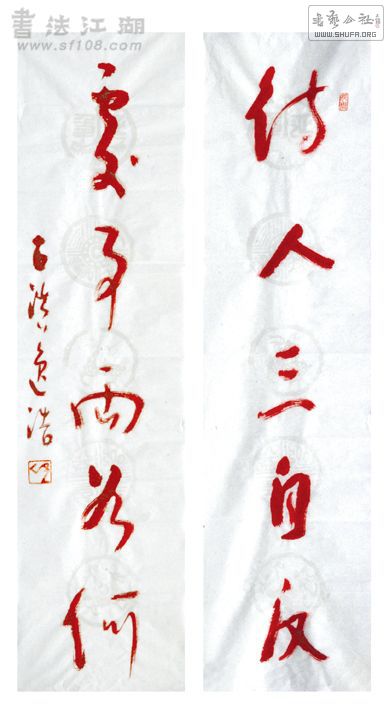 待人三自反
處事兩如何
書法江湖
www.sf108.com
書藝公社
www.SHUFA.ORG